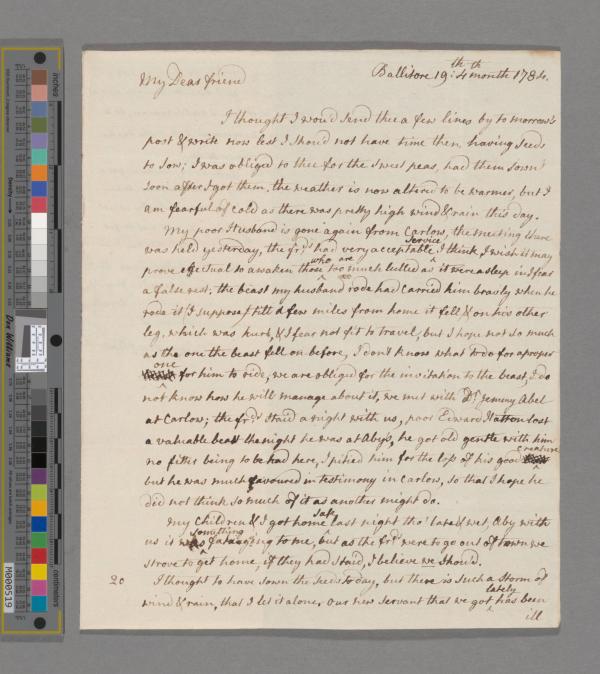 Ballitore 19th: 4th month 1784.
My Dear friend
I thought I wou'd send thee a few lines by to morrow's
post & write now lest I shou'd not have time then, having seeds
to sow; I was obliged to thee for the sweet peas, had them sown
soon after I got them, the weather is now altered to be warmer, but I
am fearful of cold as there was pretty high wind & rain this day.
My poor Husband is gone again from Carlow, the meeting there
was held yesterday, the frds. had very acceptable service I think, I wish it may
prove effectual to awaken those who are too much lulled as it were asleep in I fear
a false rest; the beast my husband rode had carried him bravly when he
rode it (I suppose) till a few miles from home it fell & on his other
leg, which was hurt, & I fear not fit to travel, but I hope not so much
as the one the beast fell on before, I don't know what to do for a proper
one for him to ride, we are obliged for the invitation to the beast, I do
not know how he will manage about it, we met with Dr. Jemmy Abel
at Carlow; the frds. staid a night with us, poor Edward Hatton lost
a valuable beast the night he was at Aby's, he got old gentle with him
no fitter being to be had here, I pitied him for the loss of his good creature
but he was much favoured in testimony in Carlow, so that I hope he
did not think so much of it as another might do.
My Children & I got home safe last night tho' late & wet, Aby with
us is was something fatagging to me, but as the frds. were to go out of town we
strove to get home, if they had staid, I believe we shou'd.
20 I thought to have sown the seeds to day, but there is such a storm of
wind & rain, that I let it alone, our new servant that we got lately has been
ill
inches
centimetres
Don Williams
Density
M000519